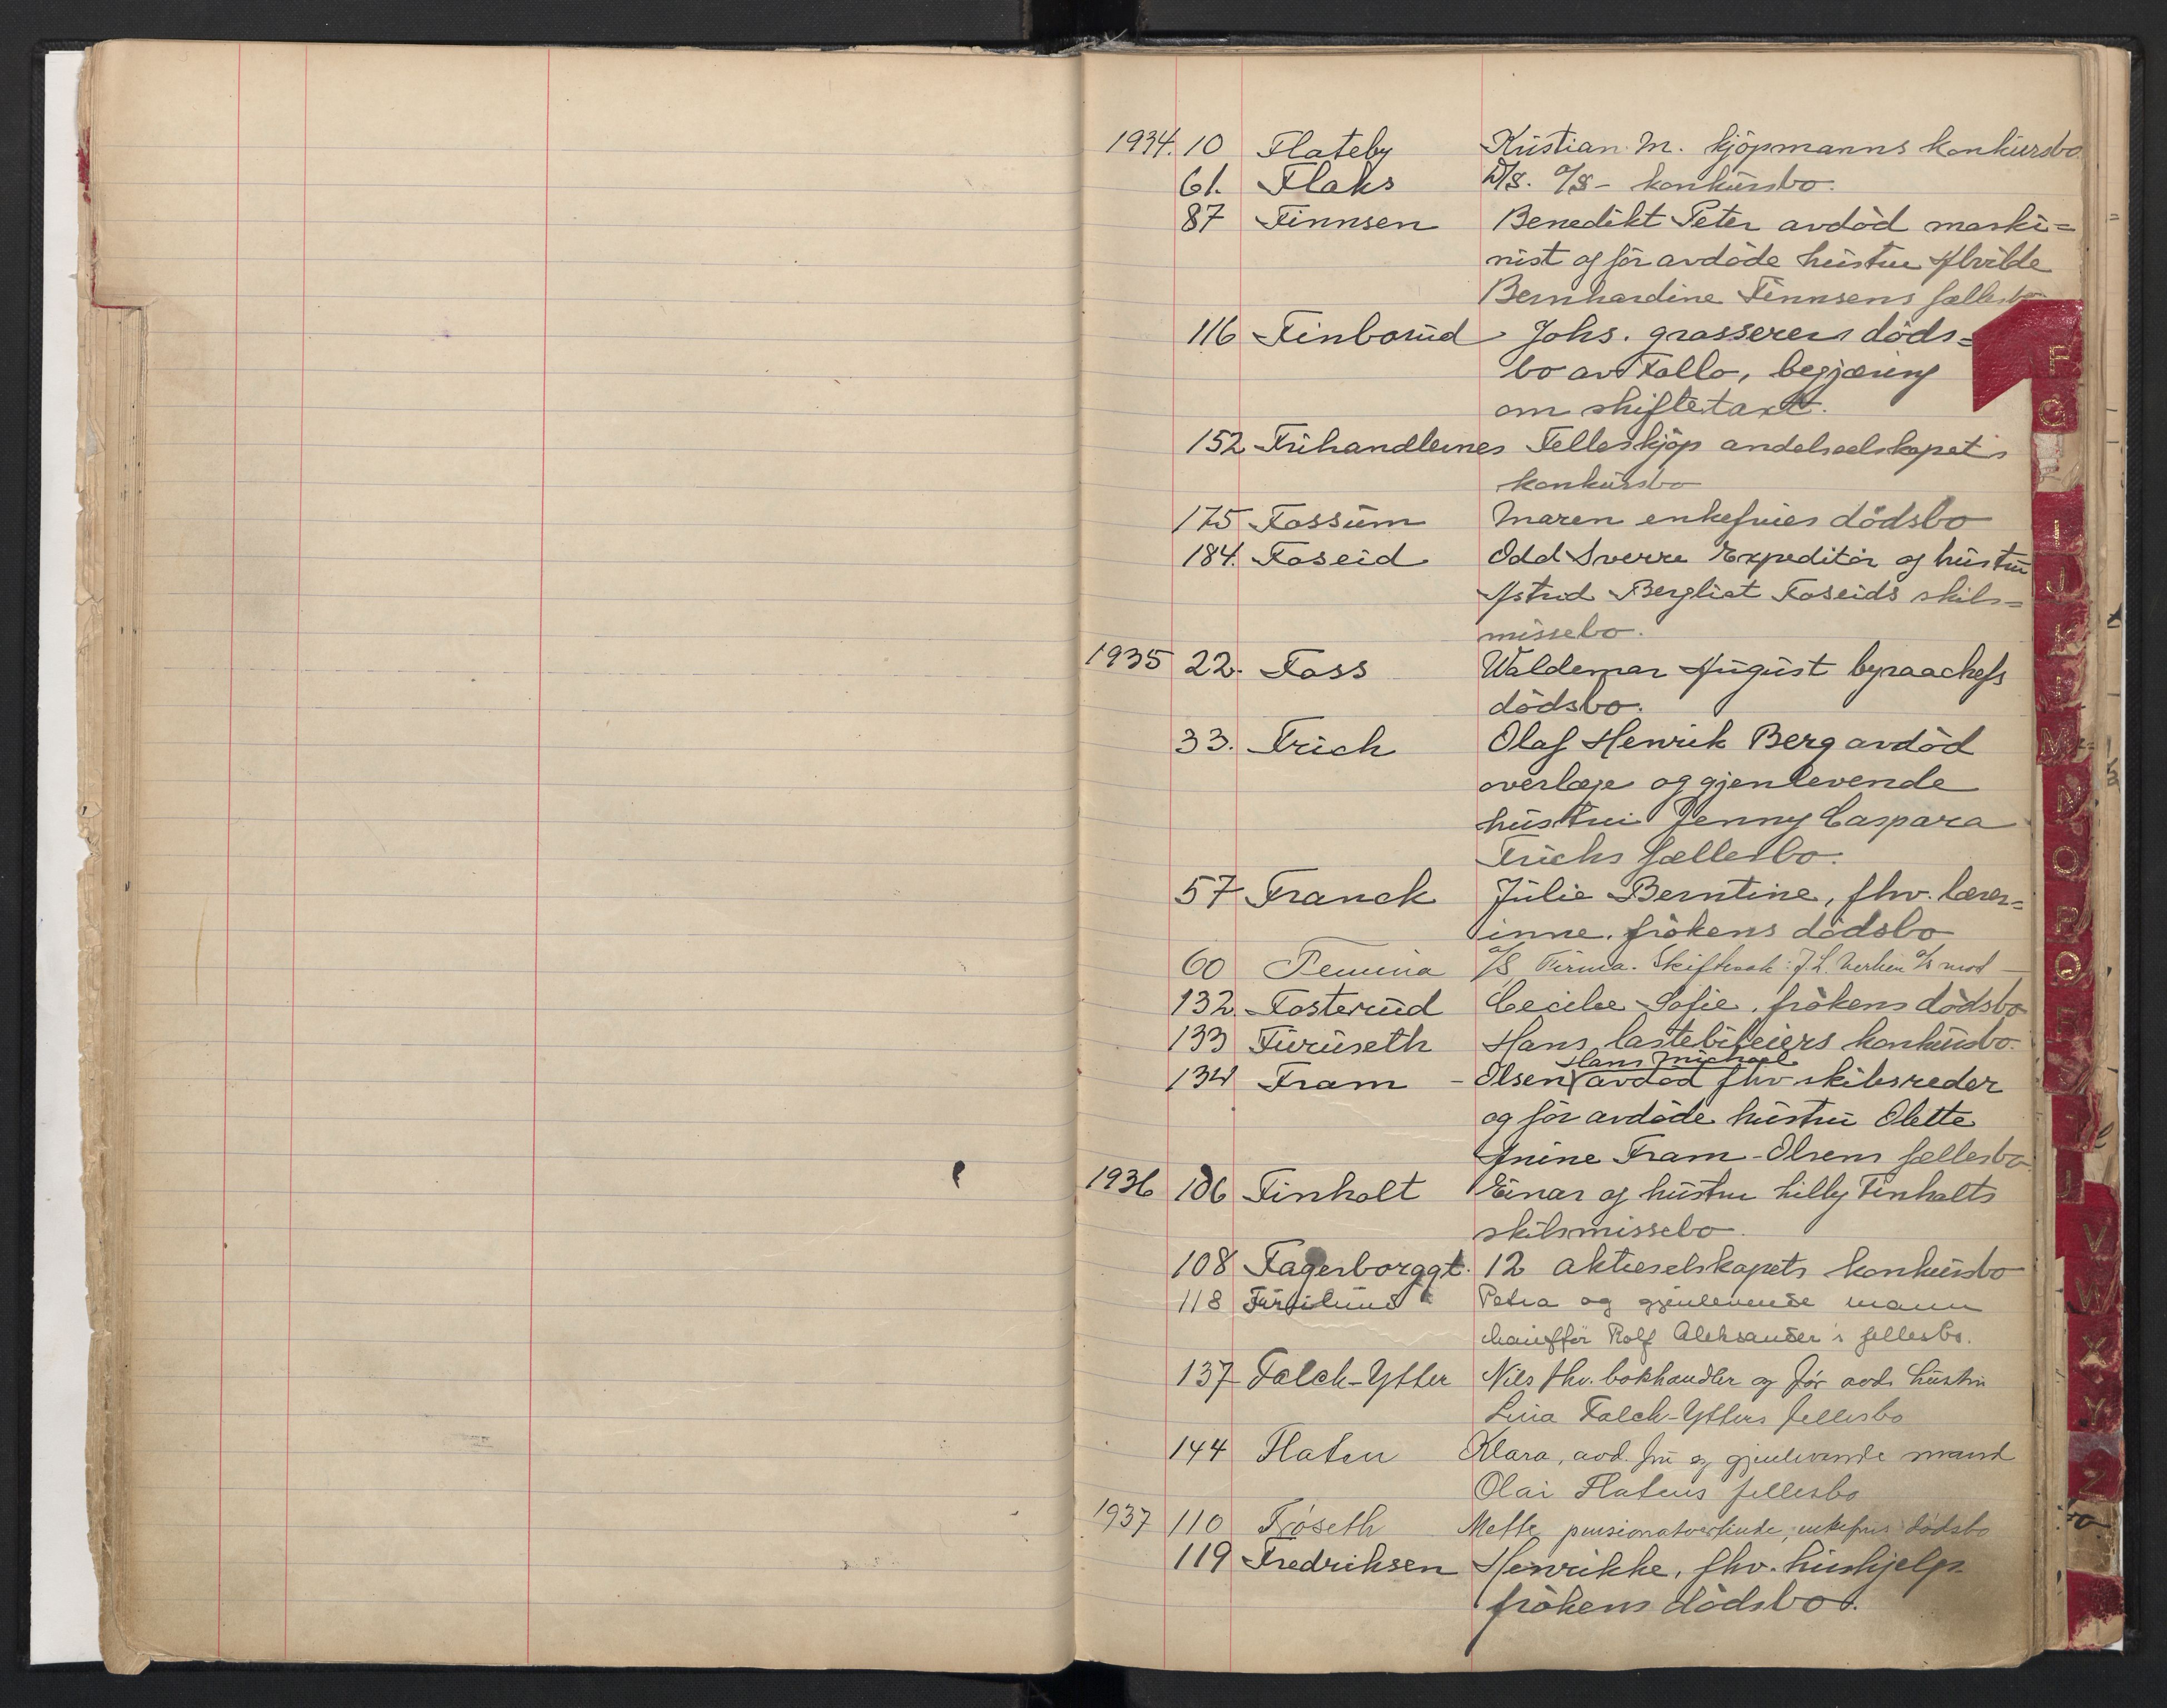 1934. 10 Flateby Kristian M. kjöpmanns konkursbo.
61. Flaks D/S. A/S - konkursbo.
87 Finnsen Benedikt Peter avdöd maski=
nist og för avdöde hustru Alvilde
Bernhardine Finnsens fællesbo
116 Finborud Johs. grosserers döds=
bo av Follo, begjæring
om skiftetaxt.
152 Frihandlernes Felleskjöp andelsselskapets
konkursbo
175 Fossum Maren enkefrues dödsbo
184. Foseid Odd Sverre Expeditör og hustru
Astrid Bergliot Foseids skils=
missebo.
1935 22. Foss Waldemar August byraachefs
dödsbo.
33. Frich Olaf Henrik Berg avdöd
overlæge og gjenlevende
hustru Jenny Caspara
Frichs fællesbo.
57 Franck Julie Berntine, fhv. lærer=
inne. frökens dödsbo
60 Femina A/S Firma. Skiftesak: J. L. A/S mot —
132. Fosterud Cecilie Sofie. frökens dödsbo
133 Furuseth Hans lastebileiers konkursbo.
Hans Michael
134 Fram - Olsen avdöd fhv skibsreder
og för avdöde hustru Olette
Anine Fram-Olsens fællesbo
1936 106 Finholt Einar og hustru Lilly Finholts
skilsmissebo.
108 Fagerborggt. 12 aktieselskapets konkursbo
118 Petra og gjenlevende mann
chaufför Rolf Aleksander's fellesbo.
137 Falch-Ytter Nils fhv. bokhandler og för avd. hustru
Lina Falch-Ytters fellesbo
144 Flaten Klara, avd. fru og gjenlevende mand
Olai Flatens fellesbo
1937 110 Fröseth Mette, pensionatvertinde, enkefrus dödsbo
119 Fredriksen Henrikke, fhv. hushjelps
frökens dödsbo.
F
G
I
J
K
L
M
N
O
P
Q
V
W
X
Y
Z